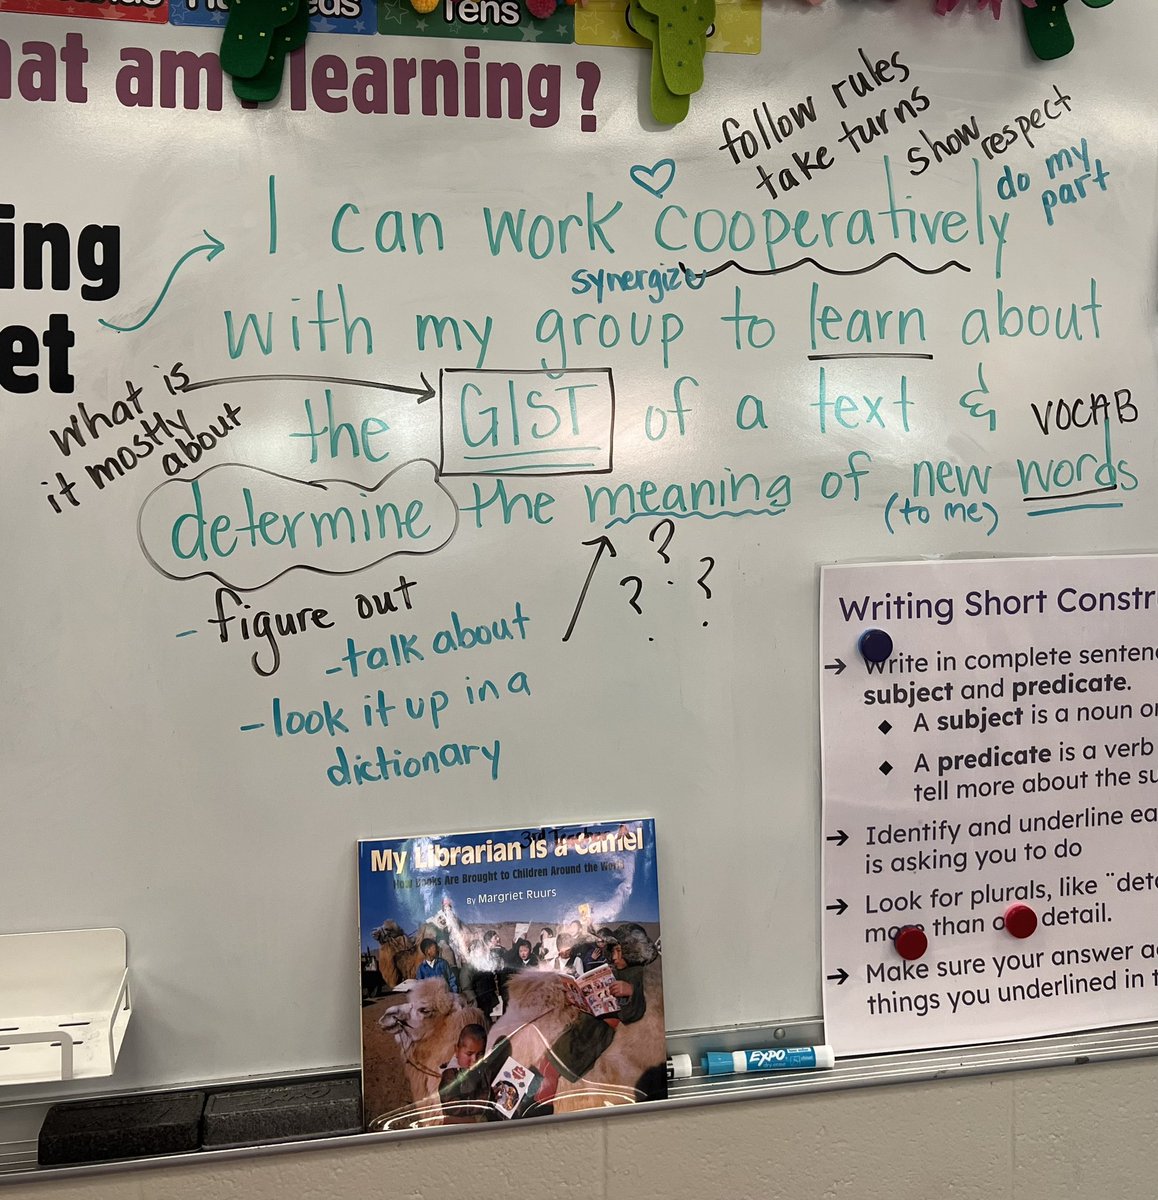 Tens
what am I learning?
follow rules
take turns
show respect
do my part
I can work cooperatively
synergize
with my group to learn about
the GIST of a text &
What is
it mostly
about
VOCAB
determine the meaning of new words
(to me)
- figure out
- talk about
- look it up in a
dictionary
? ? ?
ing
et
Writing Short Constr
➔ Write in complete senten
subject and predicate.
◆ A subject is a noun or
◆ A predicate is a verb
tell more about the su
➔ Identify and underline ea
is asking you to do
➔ Look for plurals, like ¨det
more than one detail.
➔ Make sure your answer a
things you underlined in t
My Librarian is a Camel
How Books Are Brought to Children Around the World
By Margriet Ruurs
EXPO